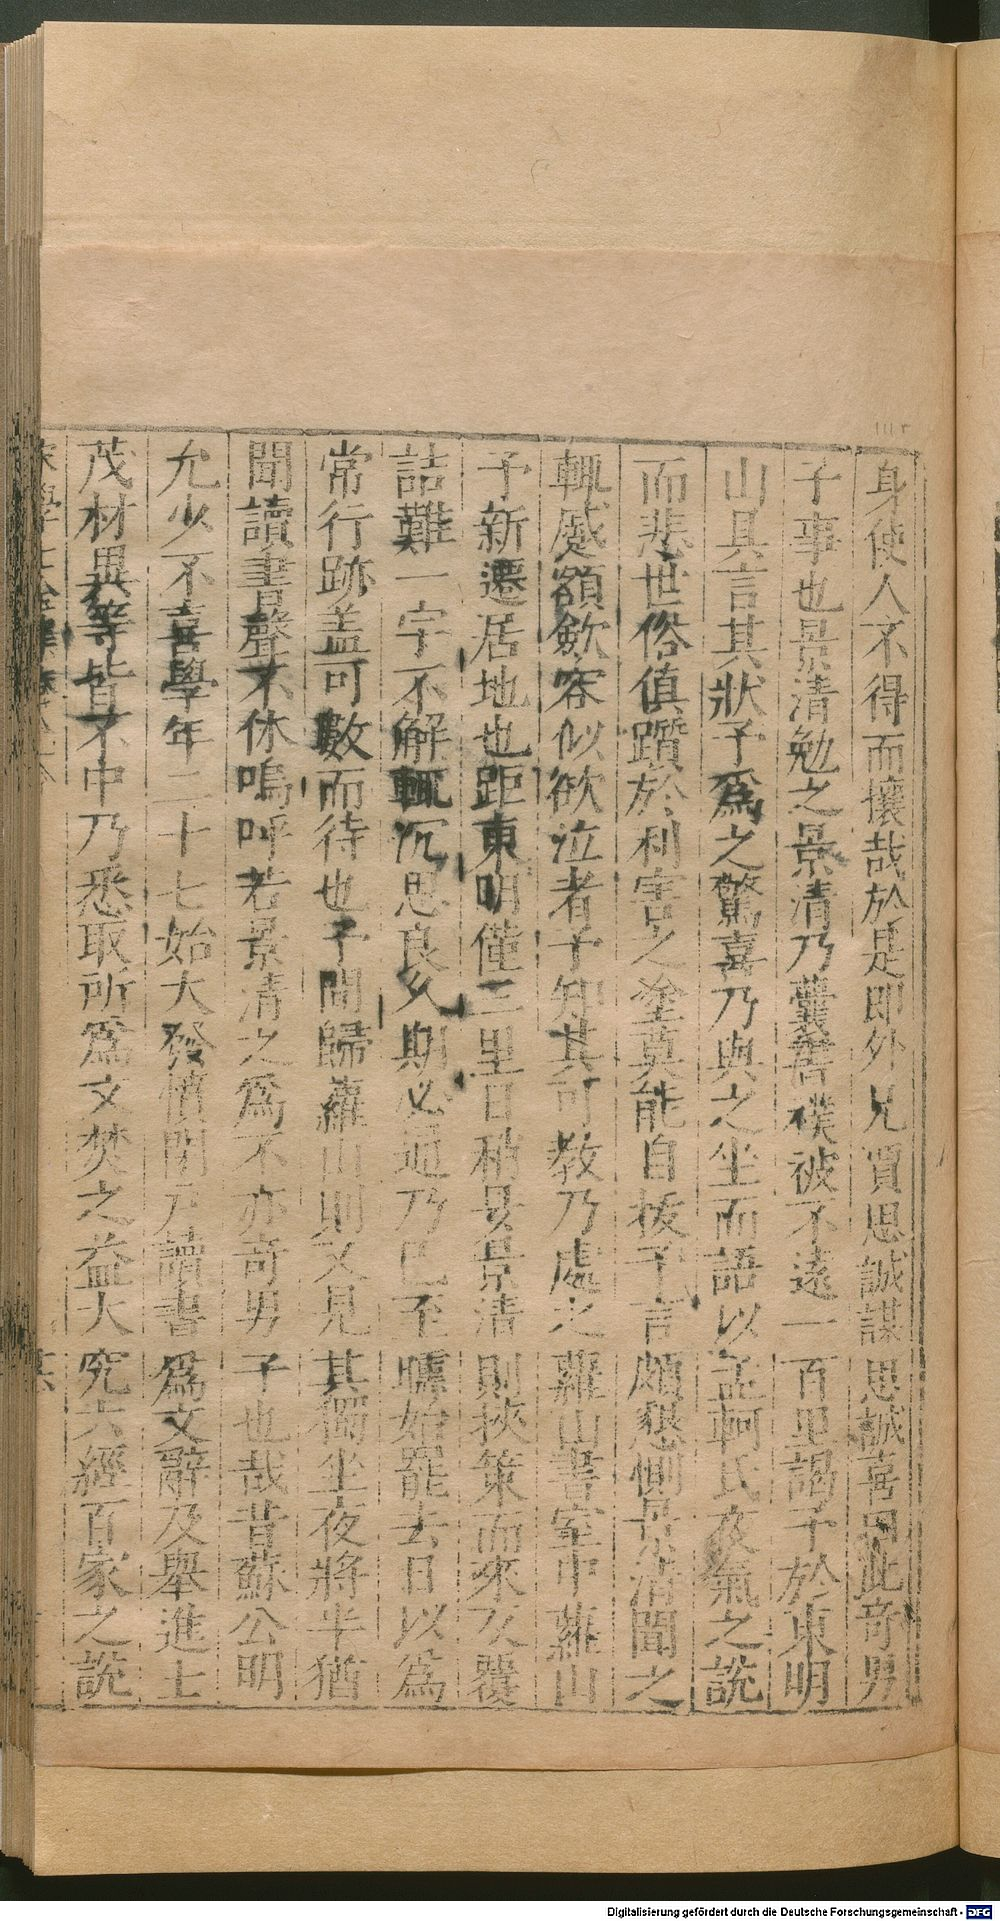 身使人不得而攘哉於是即外兄賈思誠謀思誠喜曰此奇男
子事也景清勉之景清乃囊書襆被不遠一百里謁予於東明
山具言其狀予爲之驚喜乃與之坐而語以孟軻氏夜氣之說
而悲世俗傎躓於利害之塗莫能自拔予言頗懇惻景清聞之
輒蹙額歛容似欲泣者予知其可教乃處之蘿山書室中蘿山
予新遷居地也距東明僅三里日稍昃景清則挾策而來反覆
詰難一字不解輒沉思良久期必通乃已至曛始罷去日以爲
常行跡盖可數而待也予間歸蘿山則又見其獨坐夜將半猶
聞讀書聲不休嗚呼若景清之爲不亦奇男子也哉昔蘇公明
允少不喜學年二十七始大發憤閉戶讀書爲文辭及舉進士
茂材異等皆不中乃悉取所爲文焚之益大究六經百家之說
Digitalisierung gefördert durch die Deutsche Forschungsgemeinschaft - DFG